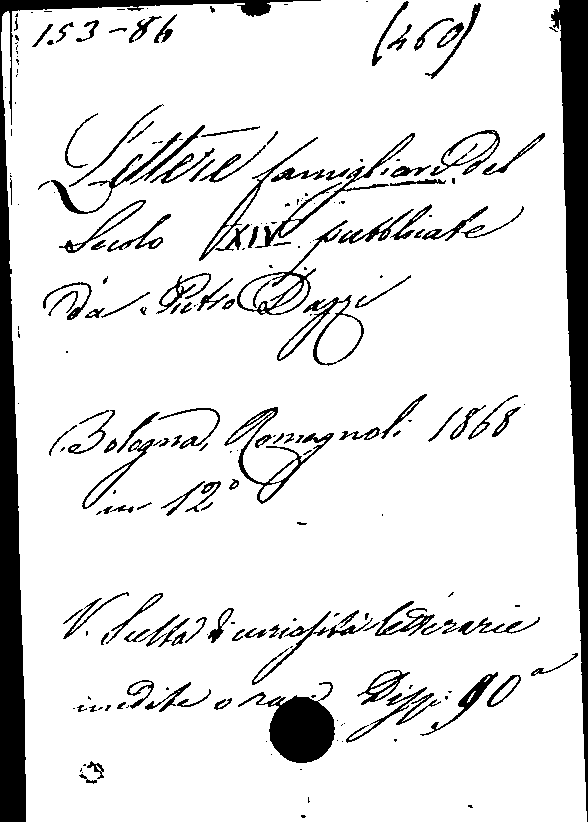 153-86 (460)
Lettere famigliari del
Secolo XIV pubblicate
da Pietro Dazzi
Bologna, Romagnoli 1868
in 12°
V. Scelta di curiosità letterarie
inedite o rare Disp. 90ª